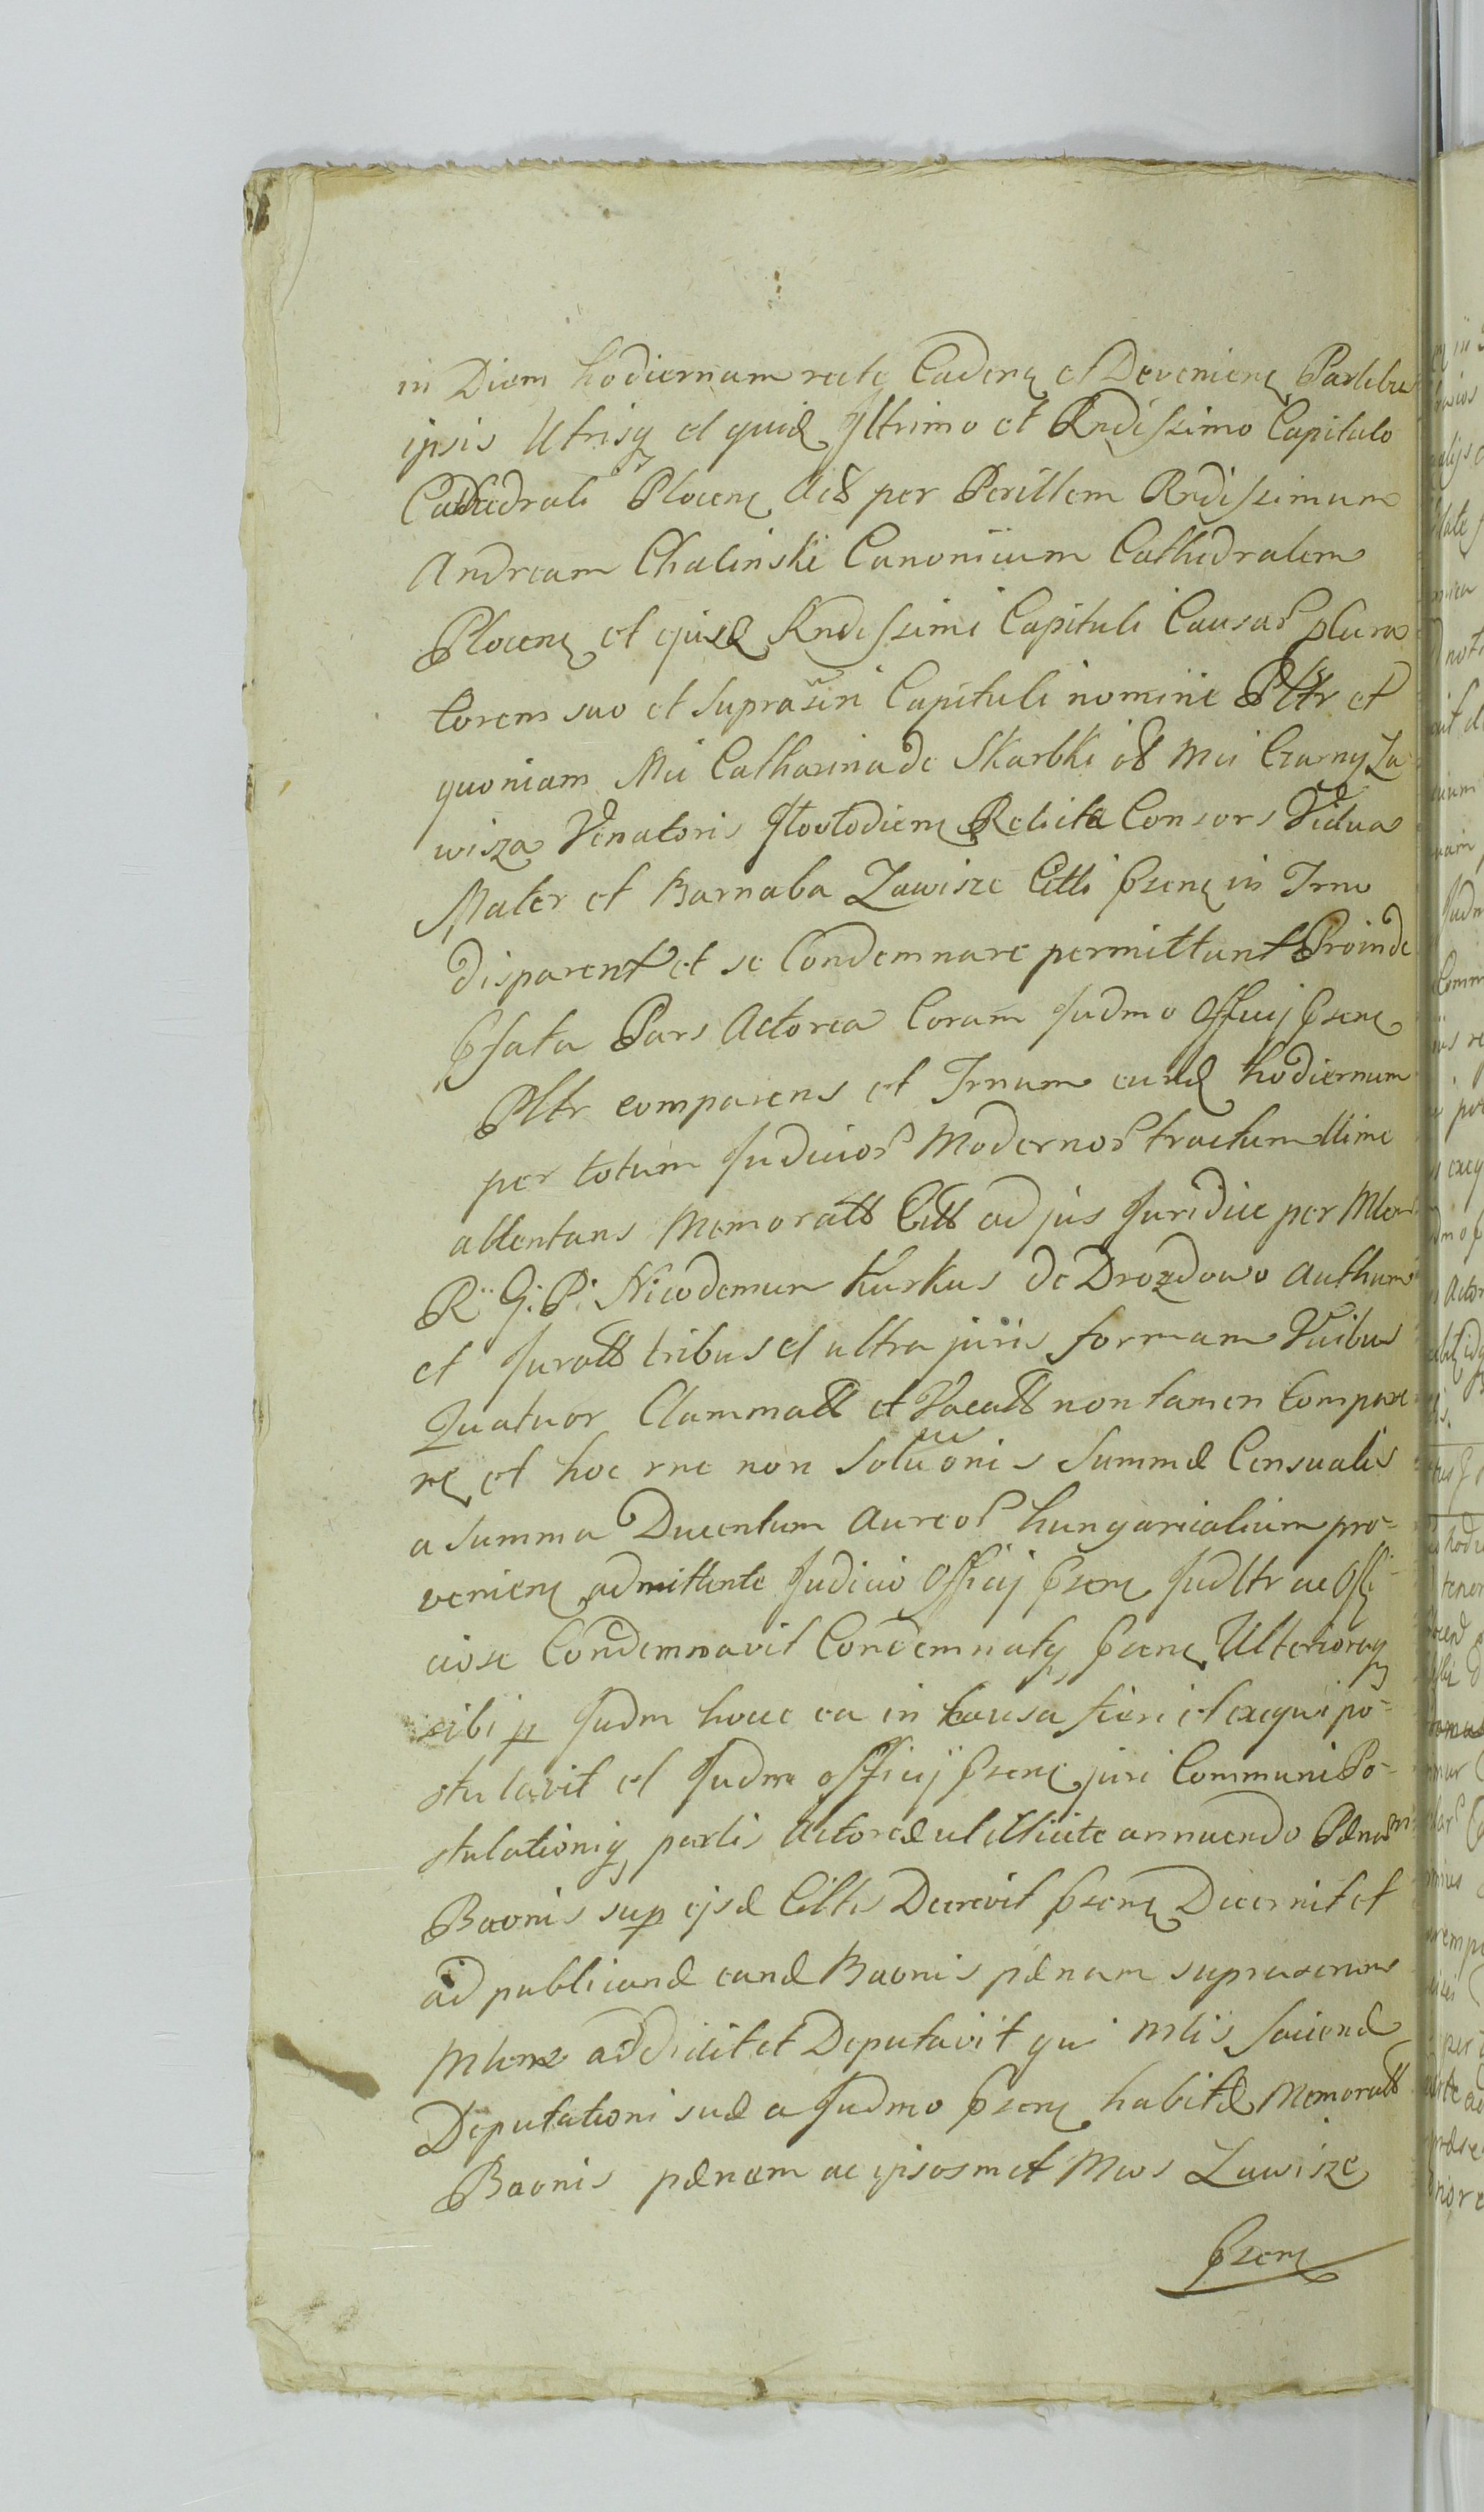 in Diem hodiernam recte Caden et Devenien Partibus
ipsis Utrisq et quid Illrimo et Rndissimo Capitulo
Cathedrali Plocen Act per Perillem Rndissimum
Andream Chalinski Canonicum Cathedralem
Plocen et ejusd Rndissimi Capituli Causar procura
torem suo et supra sni Capituli nomine Pltr et
quoniam Mci Catharina de Skarbki olt Mci Czarny Za
wisza Venatoris Relicta Consors Vidua
Mater et Barnaba Zawisze Citti psen in Trno
disparent et se Condemnare permittunt Proinde
pfata Pars Actorea Coram Judmo Officij psen
Pltr comparens et Trnum eund hodiernum
per totum Judicior Modernor tractum ttime
attentans Memoratt Citt ad jus Juridice per Mlem
R: G: P: Nicodemum Kurkus de Drozdowo Authum
et Juratt tribus et ultra juris formam Vicibus
Quatuor Clammatt et Vocatt non tamen Compare
re et hoc rne non Soluonis Summæ Censualis
a Summa Ducentum Aureor hungaricalium pro-
venien admittente Judicio Officij psen Judltr ac Offi-
ciose Condemnavit Condemnatq psen Ulteriorag
sibi p Judm hocce ea in causa fieri et exequi po-
stulavit et Judm officij psen juri Communi Po-
stulationiq partis Actoreæ ut illicite annuendo Pænam
Baonis sup ejsd Cittis Decrevit psen Decernit et
ad publicand eand Baonis pænam suprascrum
Mlem addidit et Deputavit qui Mlis faciend
Deputationi suæ a Judmo psen habitæ Memoratt
Baonis pænam ac ipsosmet Mcos Zawisze
psen